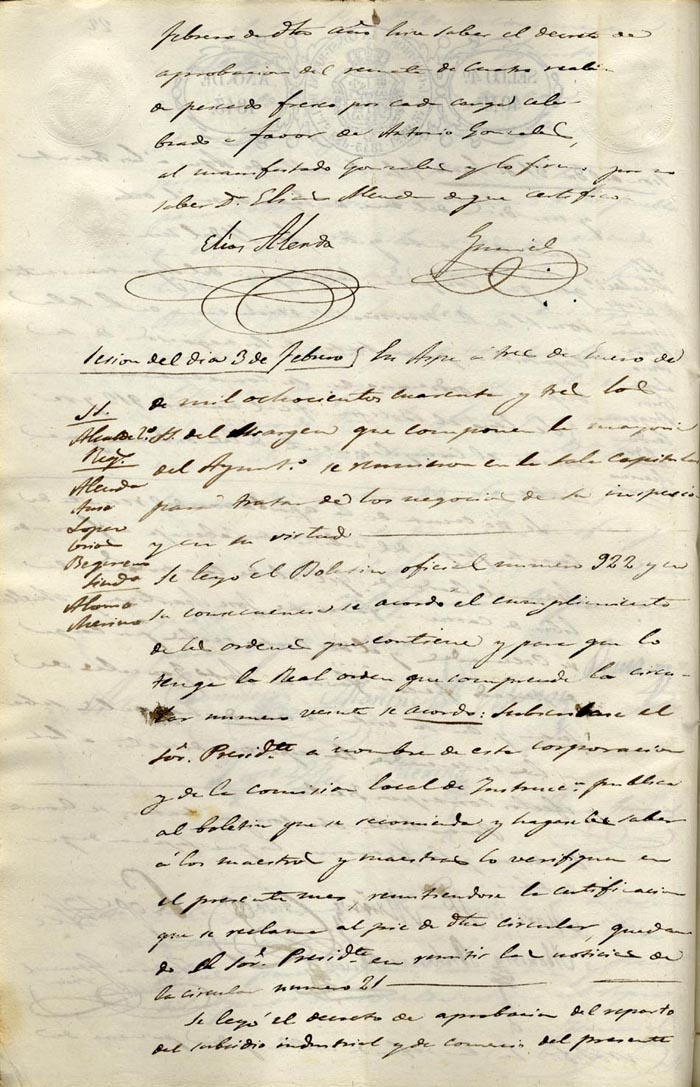 febrero de dho año hice saber el decreto de
aprobacion del remate de cuatro reales
de pescado fresco por cada carga cele-
brado a favor de Antonio Gonzalez,
al manifestado Gonzalez y lo firmo por no
saber Dn. Elias Alenda de que certifico
Elias Alenda
Sesion del dia 3 de febrero} En Aspe á tres de Enero de
de mil ochocientos cuarenta y tres los
SS. del margen que componen la mayoria
del Ayunto. se reunieron en la sala capitular
para tratar de los negocios de su inspeccio
y en su virtud
SS.
Alcalde 2º.
Regs.
Alenda
Lopez
Alonso
Merino
Se leyó el Boletin oficial numero 922 y en
su consecuencia se acordó el cumplimiento
de las ordenes que contiene y para que lo
tenga la Real orden que comprende la circu-
lar numero veinte se acordó: Subscribase el
Sor. Presidte. a nombre de esta corporacion
y de la comision local de Instrucn. publica
al boletin que se recomienda y hagasele saber
á los maestros y maestras lo verifiquen en
el presente mes, remitiendose la certificacion
que se reclama al pie de dha circular, quedan-
do el Sor. Presidte. en remitir las noticias de
la circular numero 21
Se leyó el decreto de aprobacion del reparto
del subsidio industrial y de comercio del presente